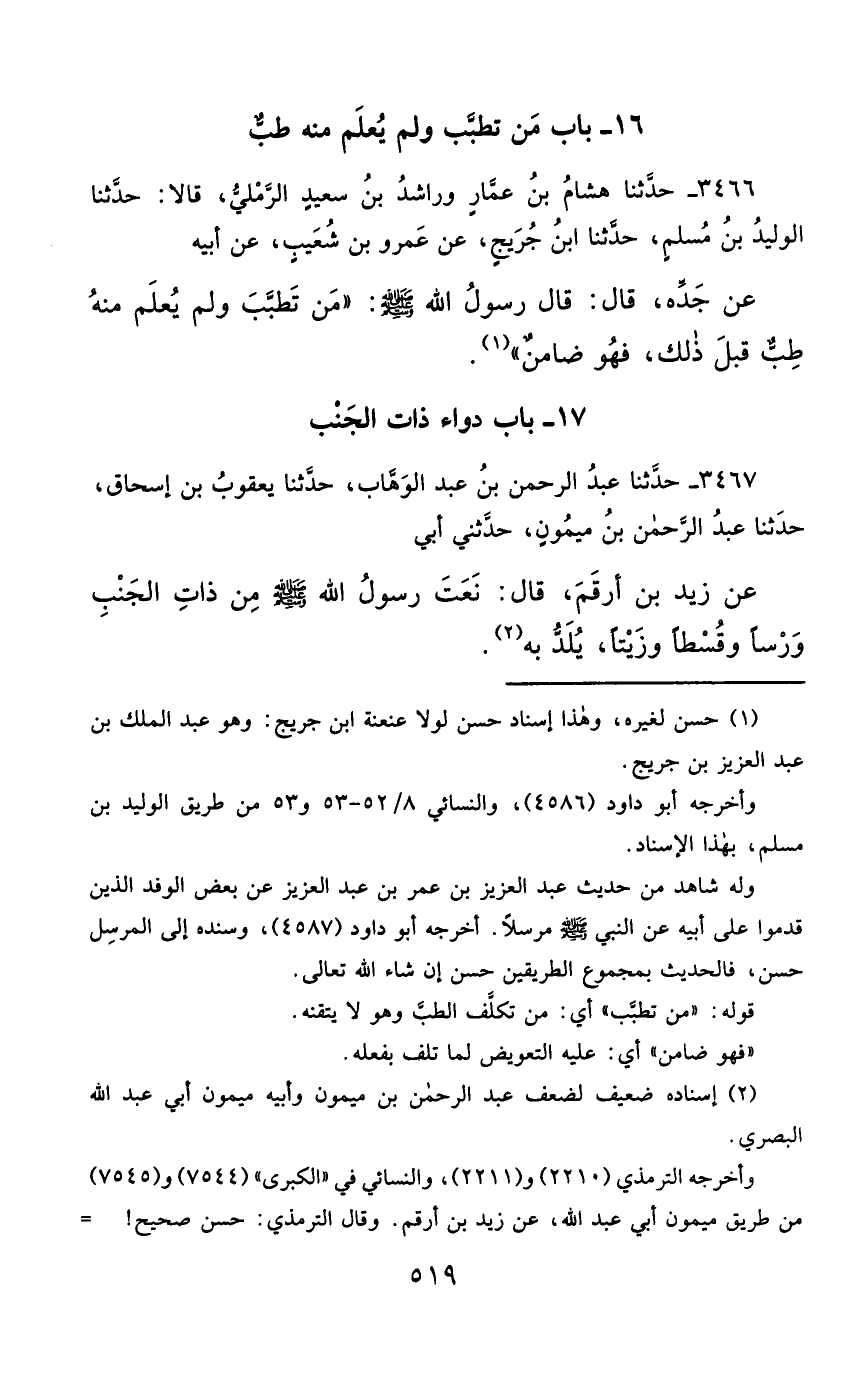 ١٦ـ باب مَن تطبَّب ولم يُعلَم منه طبٌّ
٣٤٦٦ـ حدَّثنا هشامُ بنُ عمَّارٍ وراشدُ بنُ سعيدٍ الرَّمْليُّ، قالا: حدَّثنا
الوليدُ بنُ مُسلمٍ، حدَّثنا ابنُ جُرَيجٍ، عن عَمرو بن شُعَيبٍ، عن أبيه
عن جَدِّه، قال: قال رسولُ الله ﷺ: «مَن تَطبَّبَ ولم يُعلَم منهُ
طِبٌّ قبلَ ذٰلك، فهُو ضامنٌ»(١).
١٧ـ باب دواء ذات الجَنْب
٣٤٦٧ـ حدَّثنا عبدُ الرحمن بنُ عبد الوَهَّاب، حدَّثنا يعقوبُ بن إسحاق،
حدَثنا عبدُ الرَّحمٰن بنُ ميمُونٍ، حدَّثني أبي
عن زيد بن أرقَمَ، قال: نَعَتَ رسولُ الله ﷺ مِن ذاتِ الجَنْبِ
وَرْساً وقُسْطاً وزَيْتاً، يُلَدُّ به(٢).
(١) حسن لغيره، وهٰذا إسناد حسن لولا عنعنة ابن جريج: وهو عبد الملك بن
عبد العزيز بن جريج.
وأخرجه أبو داود (٤٥٨٦)، والنسائي ٨/ ٥٢-٥٣ و٥٣ من طريق الوليد بن
مسلم، بهٰذا الإسناد.
وله شاهد من حديث عبد العزيز بن عمر بن عبد العزيز عن بعض الوفد الذين
قدموا على أبيه عن النبي ﷺ مرسلاً. أخرجه أبو داود (٤٥٨٧)، وسنده إلى المرسِل
حسن، فالحديث بمجموع الطريقين حسن إن شاء الله تعالى.
قوله: «من تطبَّب» أي: من تكلَّف الطبَّ وهو لا يتقنه.
«فهو ضامن» أي: عليه التعويض لما تلف بفعله.
(٢) إسناده ضعيف لضعف عبد الرحمٰن بن ميمون وأبيه ميمون أبي عبد الله
البصري.
وأخرجه الترمذي (٢٢١٠) و(٢٢١١)، والنسائي في «الكبرى» (٧٥٤٤) و(٧٥٤٥)
من طريق ميمون أبي عبد الله، عن زيد بن أرقم. وقال الترمذي: حسن صحيح! =
٥١٩